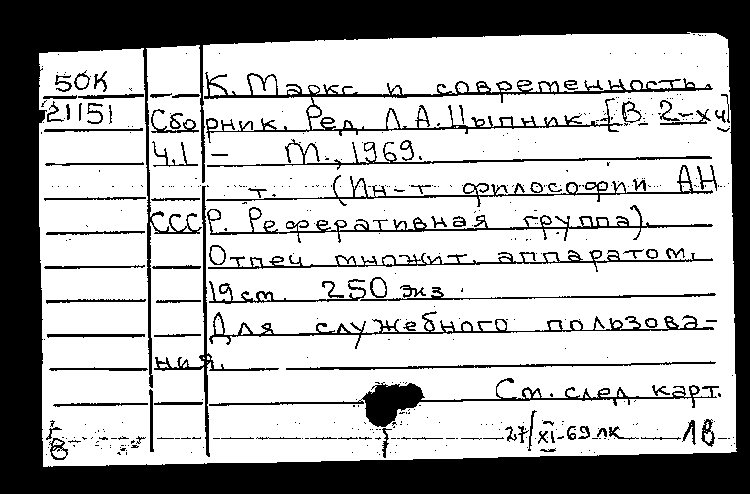 50К К. Маркс и современность.
21151 Сборник. Ред. Л.А.Цыпник. [В 2-х ч]
Ч.1 – М., 1969.
т. (Ин-т философии АН
СССР. Реферативная группа).
Отпеч. множит. аппаратом.
19 см. 250 экз.
Для служебного пользова-
ния.
См. след. карт.
27/XI-69 лк 1В